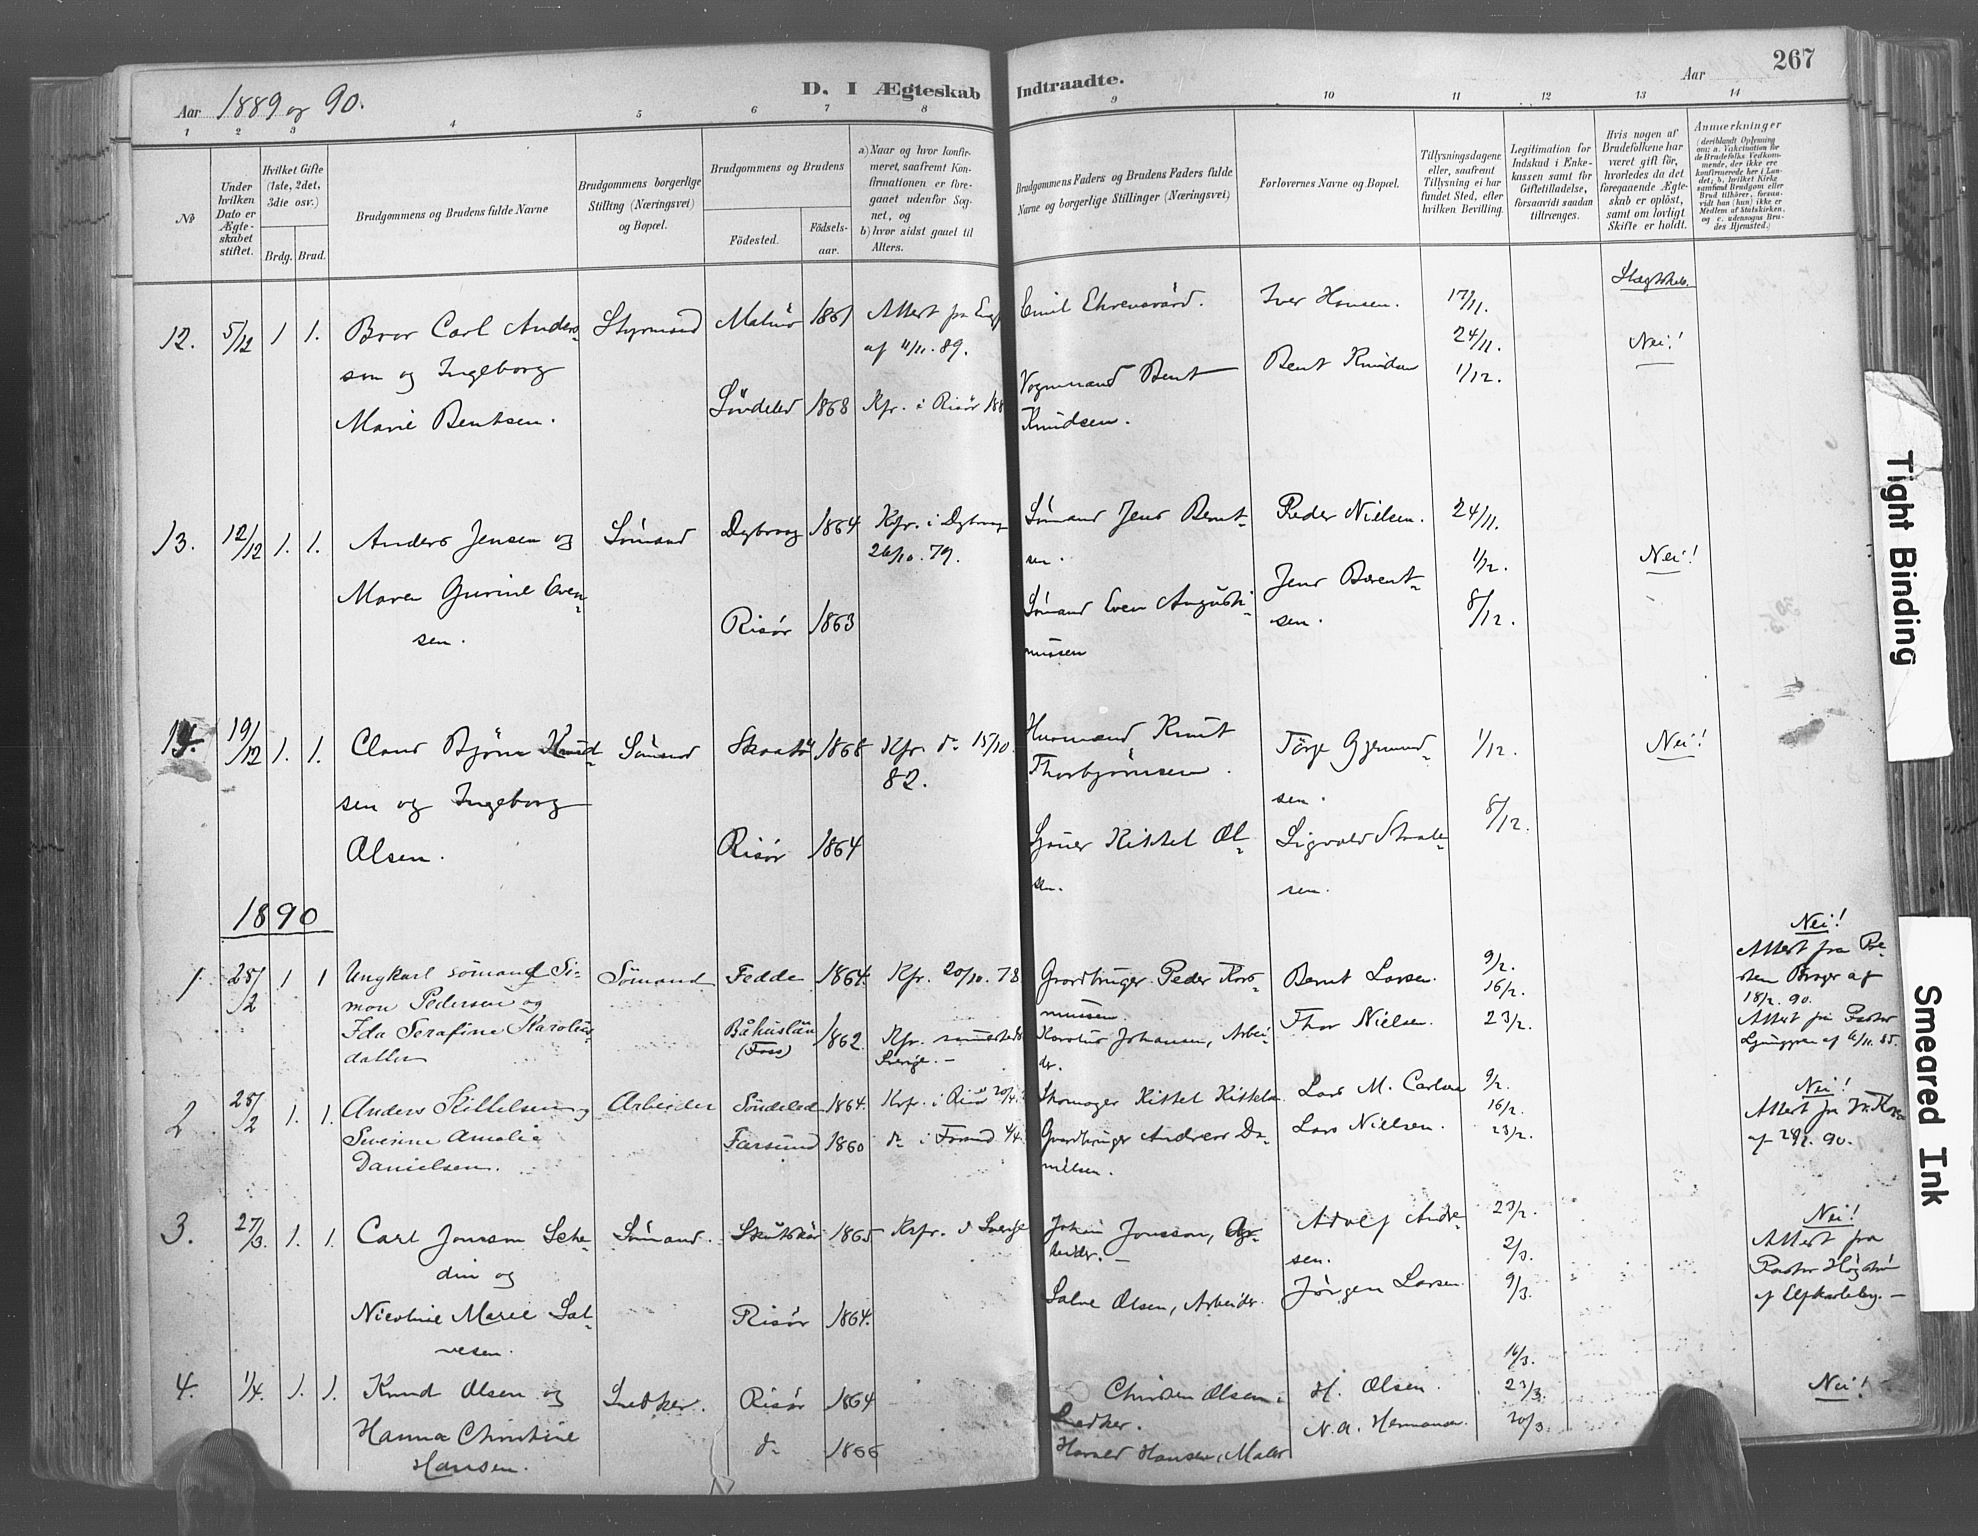 267
Aar 1889 og 90.
D. I Ægteskab Indtraadte.
Aar
1 2 3 4 5 6 7 8 9 10 11 12 13 14
No
Under hvilken Dato er Ægteskabet stiftet.
Hvilket Gifte (1ste, 2det, 3die osv.)
Brdg. Brud.
Brudgommens og Brudens fulde Navne
Brudgommens borgerlige Stilling (Næringsvei) og Bopæl.
Brudgommens og Brudens
Födested.
Födsels-aar.
a) Naar og hvor konfirmeret, saafremt Konfirmationen er foregaaet udenfor Sognet, og
b) hvor sidst gaaet til Alters.
Brudgommens Faders og Brudens Faders fulde Navne og borgerlige Stillinger (Næringsvei)
Forlovernes Navne og Bopæl.
Tillysningsdagene eller, saafremt Tillysning ei har fundet Sted, efter hvilken Bevilling.
Legitimation for Indskud i Enkekassen samt for Giftetilladelse, forsaavidt saadan tiltrænges.
Hvis nogen af Brudefolkene har været gift för, hvorledes da det foregaaende Ægteskab er oplöst, samt om lovligt Skifte er holdt.
Anmærkninger
(deriblandt Oplysning om: a. Vakcination for de Brudefolks Vedkommende, der ikke ere konfirmerede her i Landet; b. hvilket Kirkesamfund Brudgom eller Brud tilhörer, forsaavidt han (hun) ikke er Medlem af Statskirken, og c. udensogns Brudes Hjemsted.)
Slægtskab.
12. 5/12 1 1. Bror Carl Anders- Styrmand Malmö 1861 Attest fra Emil Ehrensvärd. Iver Hansen. 17/11.
son og Ingeborg af 4/11. 89. 24/11. Nei!
Marie Bentsen. Söndeled 1868 Kfr. i Risör Vognmand Bent Bent Knudsen 1/12.
Knudsen.
13. 12/12 1. 1. Anders Jensen og Sömand Dybvaag 1864 Kfr. i Dybvaag Sömand Jens Bernt- Peder Nielsen. 24/11.
26/10. 79. sen. 1/12. Nei!
Maren Gurine Even- Risör 1863 Sömand Even Augusti- Jens Berent- 8/12.
sen. nussen sen.
14. 19/12 1. 1. Claus Björn Knud- Sömand Skaatö 1868 Kfr. do 15/10. Knut Törge Gjermund- 1/12. Nei!
sen og Ingeborg 82. Thorbjörnsen. sen. 8/12.
Olsen. Risör 1864 Kittel Ol- Sigvald
sen. sen.
1890
1. 25/2 1 1 Ungkarl sömand Si- Sömand Fedde 1864. Kfr. 20/10. 78 Gaardbruger Peder Ras- Bernt Larsen. 9/2. Nei!
mon Pedersen og mussen. 16/2. Attest fra
Ida Serafine Karolus- Båhuslän (Foss) 1862. Kfr. Karolus Johansen, Arbei- Thor Nielsen. 23/2. af 18/2. 90.
datter Sverige. – der. Attest fra Pastor
Ljunggren af 6/11. 85.
2 25/2 1. 1. Anders Kittelsen og Arbeider Söndeled 1864. Kfr. i Risör Skomager Kittel Kittels. Lars M. Carlsen 9/2. Nei!
Severine Amalie Farsund 1860 do i Farsund Gaardbruger Andreas Da- Lars Nielsen. 16/2. Attest fra
Danielsen. nielsen. 23/2. af 90.
3. 27/3. 1. 1. Carl Jonsson Sche- Sömand. Skutskär 1865 Kfr. i Sverige Johan Jonsson, Ar- Adolf Andre- 23/2. Nei!
din og beider. – sen. 2/3. Attest fra
Nicoline Marie Sal- Risör 1864. Salve Olsen, Arbeider. Jörgen Larsen. 9/3. Pastor
vesen. af Elfkarleby. –
4. 1/4. 1. 1. Knud Olsen og Snedker. Risör 1864 Christen Olsen. H. Olsen. 16/3. Nei!
Hanna Christine do 1866 Snedker. N. A. Hermansen. 23/3.
Hansen. Harald Hansen, Maler 30/3.
Tight Binding
Smeared Ink